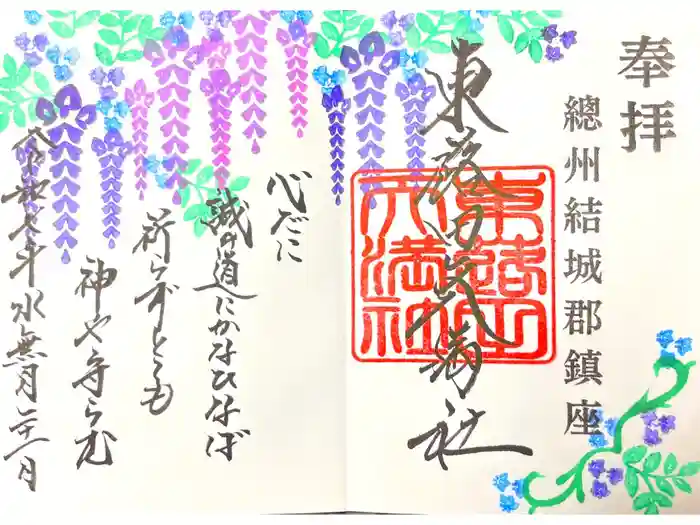 奉拝
總州結城郡鎮座
東蕗田天満社
東蕗田天満社
心だに
誠の道にかなひなば
祈らずとも
神や守らむ
令和七年水無月二十一日